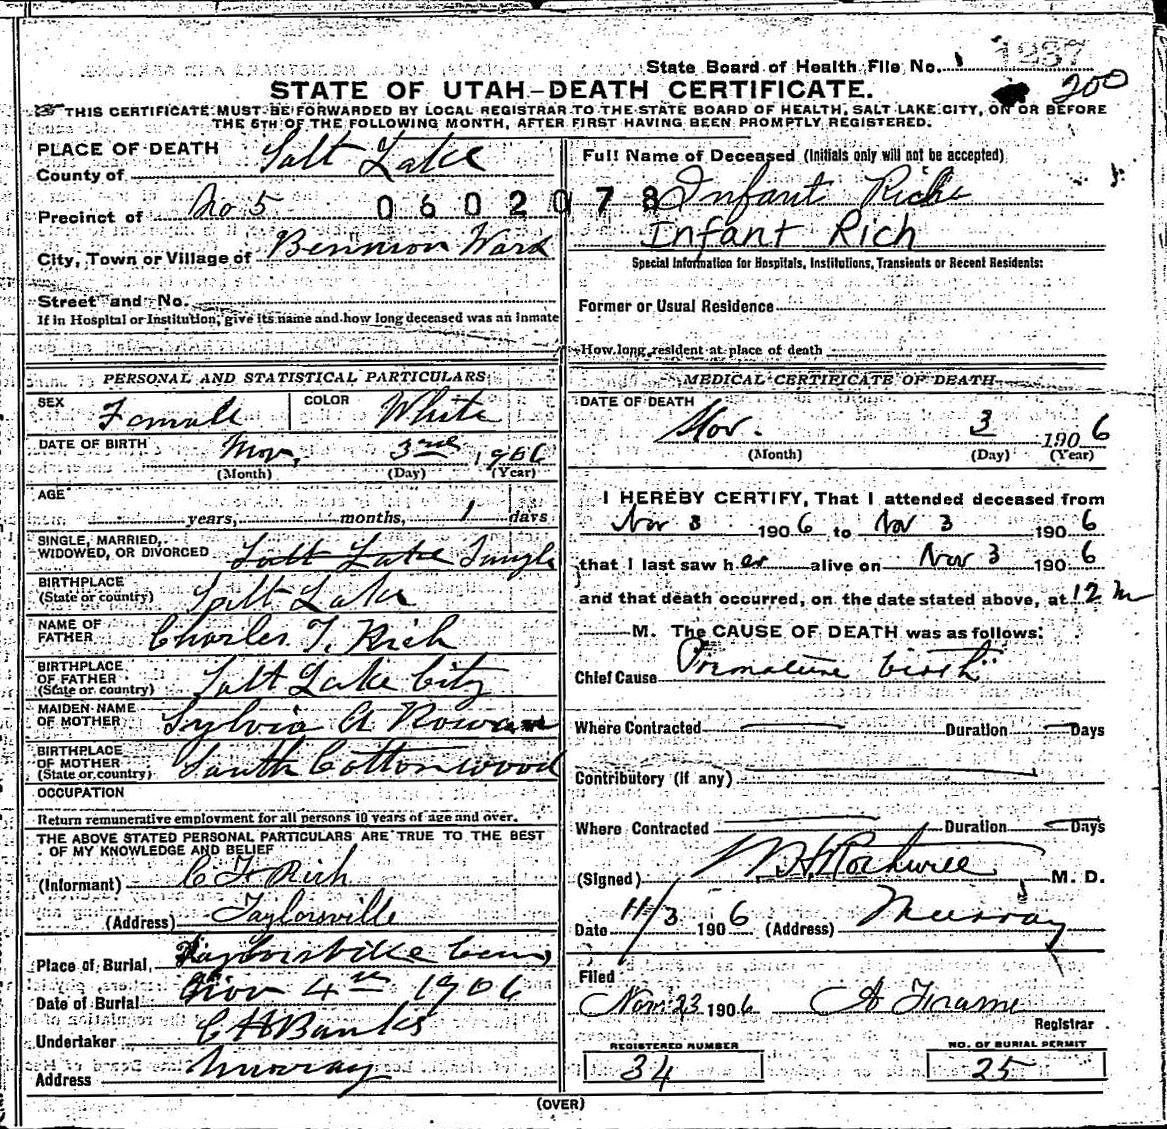 State Board of Health File No. 1237
200
STATE OF UTAH-DEATH CERTIFICATE.
THIS CERTIFICATE MUST BE FORWARDED BY LOCAL REGISTRAR TO THE STATE BOARD OF HEALTH, SALT LAKE CITY, ON OR BEFORE
THE 5TH OF THE FOLLOWING MONTH, AFTER FIRST HAVING BEEN PROMPTLY REGISTERED.
PLACE OF DEATH
County of Salt Lake
Precinct of No 5
0602078
City, Town or Village of Bennion Ward
Street and No.
If in Hospital or Institution, give its name and how long deceased was an inmate
Full Name of Deceased (Initials only will not be accepted)
Infant Rich
Infant Rich
Special Information for Hospitals, Institutions, Transients or Recent Residents:
Former or Usual Residence
How long resident at place of death
PERSONAL AND STATISTICAL PARTICULARS
SEX Female COLOR White
DATE OF BIRTH Nov. 3rd 1906
(Month) (Day) (Year)
AGE
years, months, 1 days
SINGLE, MARRIED,
WIDOWED, OR DIVORCED Salt Lake Single
BIRTHPLACE
(State or country) Salt Lake
NAME OF
FATHER Charles T. Rich
BIRTHPLACE
OF FATHER
(State or country) Salt Lake City
MAIDEN NAME
OF MOTHER Sylvia A Rowan
BIRTHPLACE
OF MOTHER
(State or country) South Cottonwood
OCCUPATION
Return remunerative employment for all persons 10 years of age and over.
THE ABOVE STATED PERSONAL PARTICULARS ARE TRUE TO THE BEST
OF MY KNOWLEDGE AND BELIEF
(Informant) C T Rich
(Address) Taylorsville
Place of Burial, Taylorsville Cem
Date of Burial Nov 4th 1906
Undertaker C H Banks
Address Murray
MEDICAL CERTIFICATE OF DEATH
DATE OF DEATH
Nov. 3 1906
(Month) (Day) (Year)
I HEREBY CERTIFY, That I attended deceased from
Nov 3 1906 to Nov 3 1906
that I last saw her alive on Nov 3 1906
and that death occurred, on the date stated above, at 12 M
M. The CAUSE OF DEATH was as follows:
Chief Cause Premature birth
Where Contracted Duration Days
Contributory (if any)
Where Contracted Duration Days
(Signed) Rothwell M. D.
Date 11/3 1906 (Address) Murray
Filed
Nov 23 1906 A Frame
Registrar
REGISTERED NUMBER
34
NO. OF BURIAL PERMIT
25
(OVER)